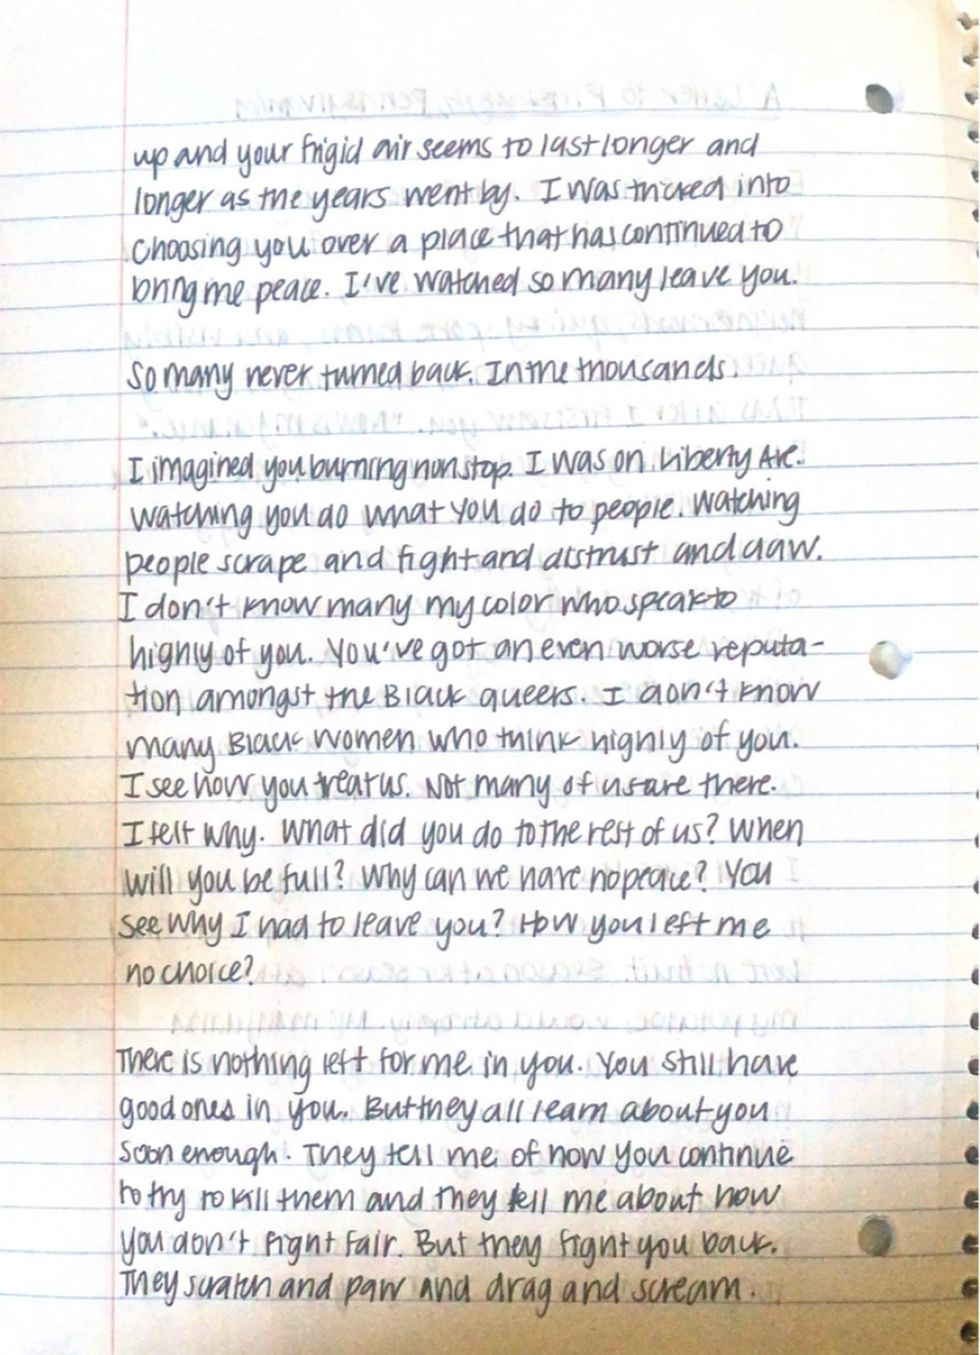 up and your frigid air seems to last longer and
longer as the years went by. I was tricked into
choosing you over a place that has continued to
bring me peace. I've watched so many leave you.
So many never turned back. In the thousands.
I imagined you burning nonstop. I was on Liberty Ave.
watching you do what you do to people. Watching
people scrape and fight and distrust and claw.
I don't know many my color who speak to
highly of you. You've got an even worse reputa-
tion amongst the Black queers. I don't know
many Black women who think highly of you.
I see how you treat us. Not many of us are there.
I felt why. What did you do to the rest of us? When
will you be full? Why can we have no peace? You
see why I had to leave you? How you left me
no choice?
There is nothing left for me in you. You still have
good ones in you. But they all learn about you
soon enough. They tell me of how you continue
to try to kill them and they tell me about how
you don't fight fair. But they fight you back.
They scratch and paw and drag and scream.